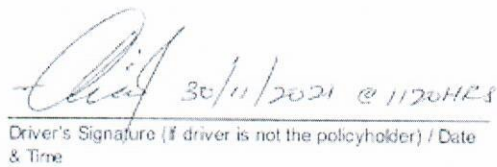 30/11/2021 @ 1120HRS
Driver's Signature (if driver is not the policyholder) / Date
& Time